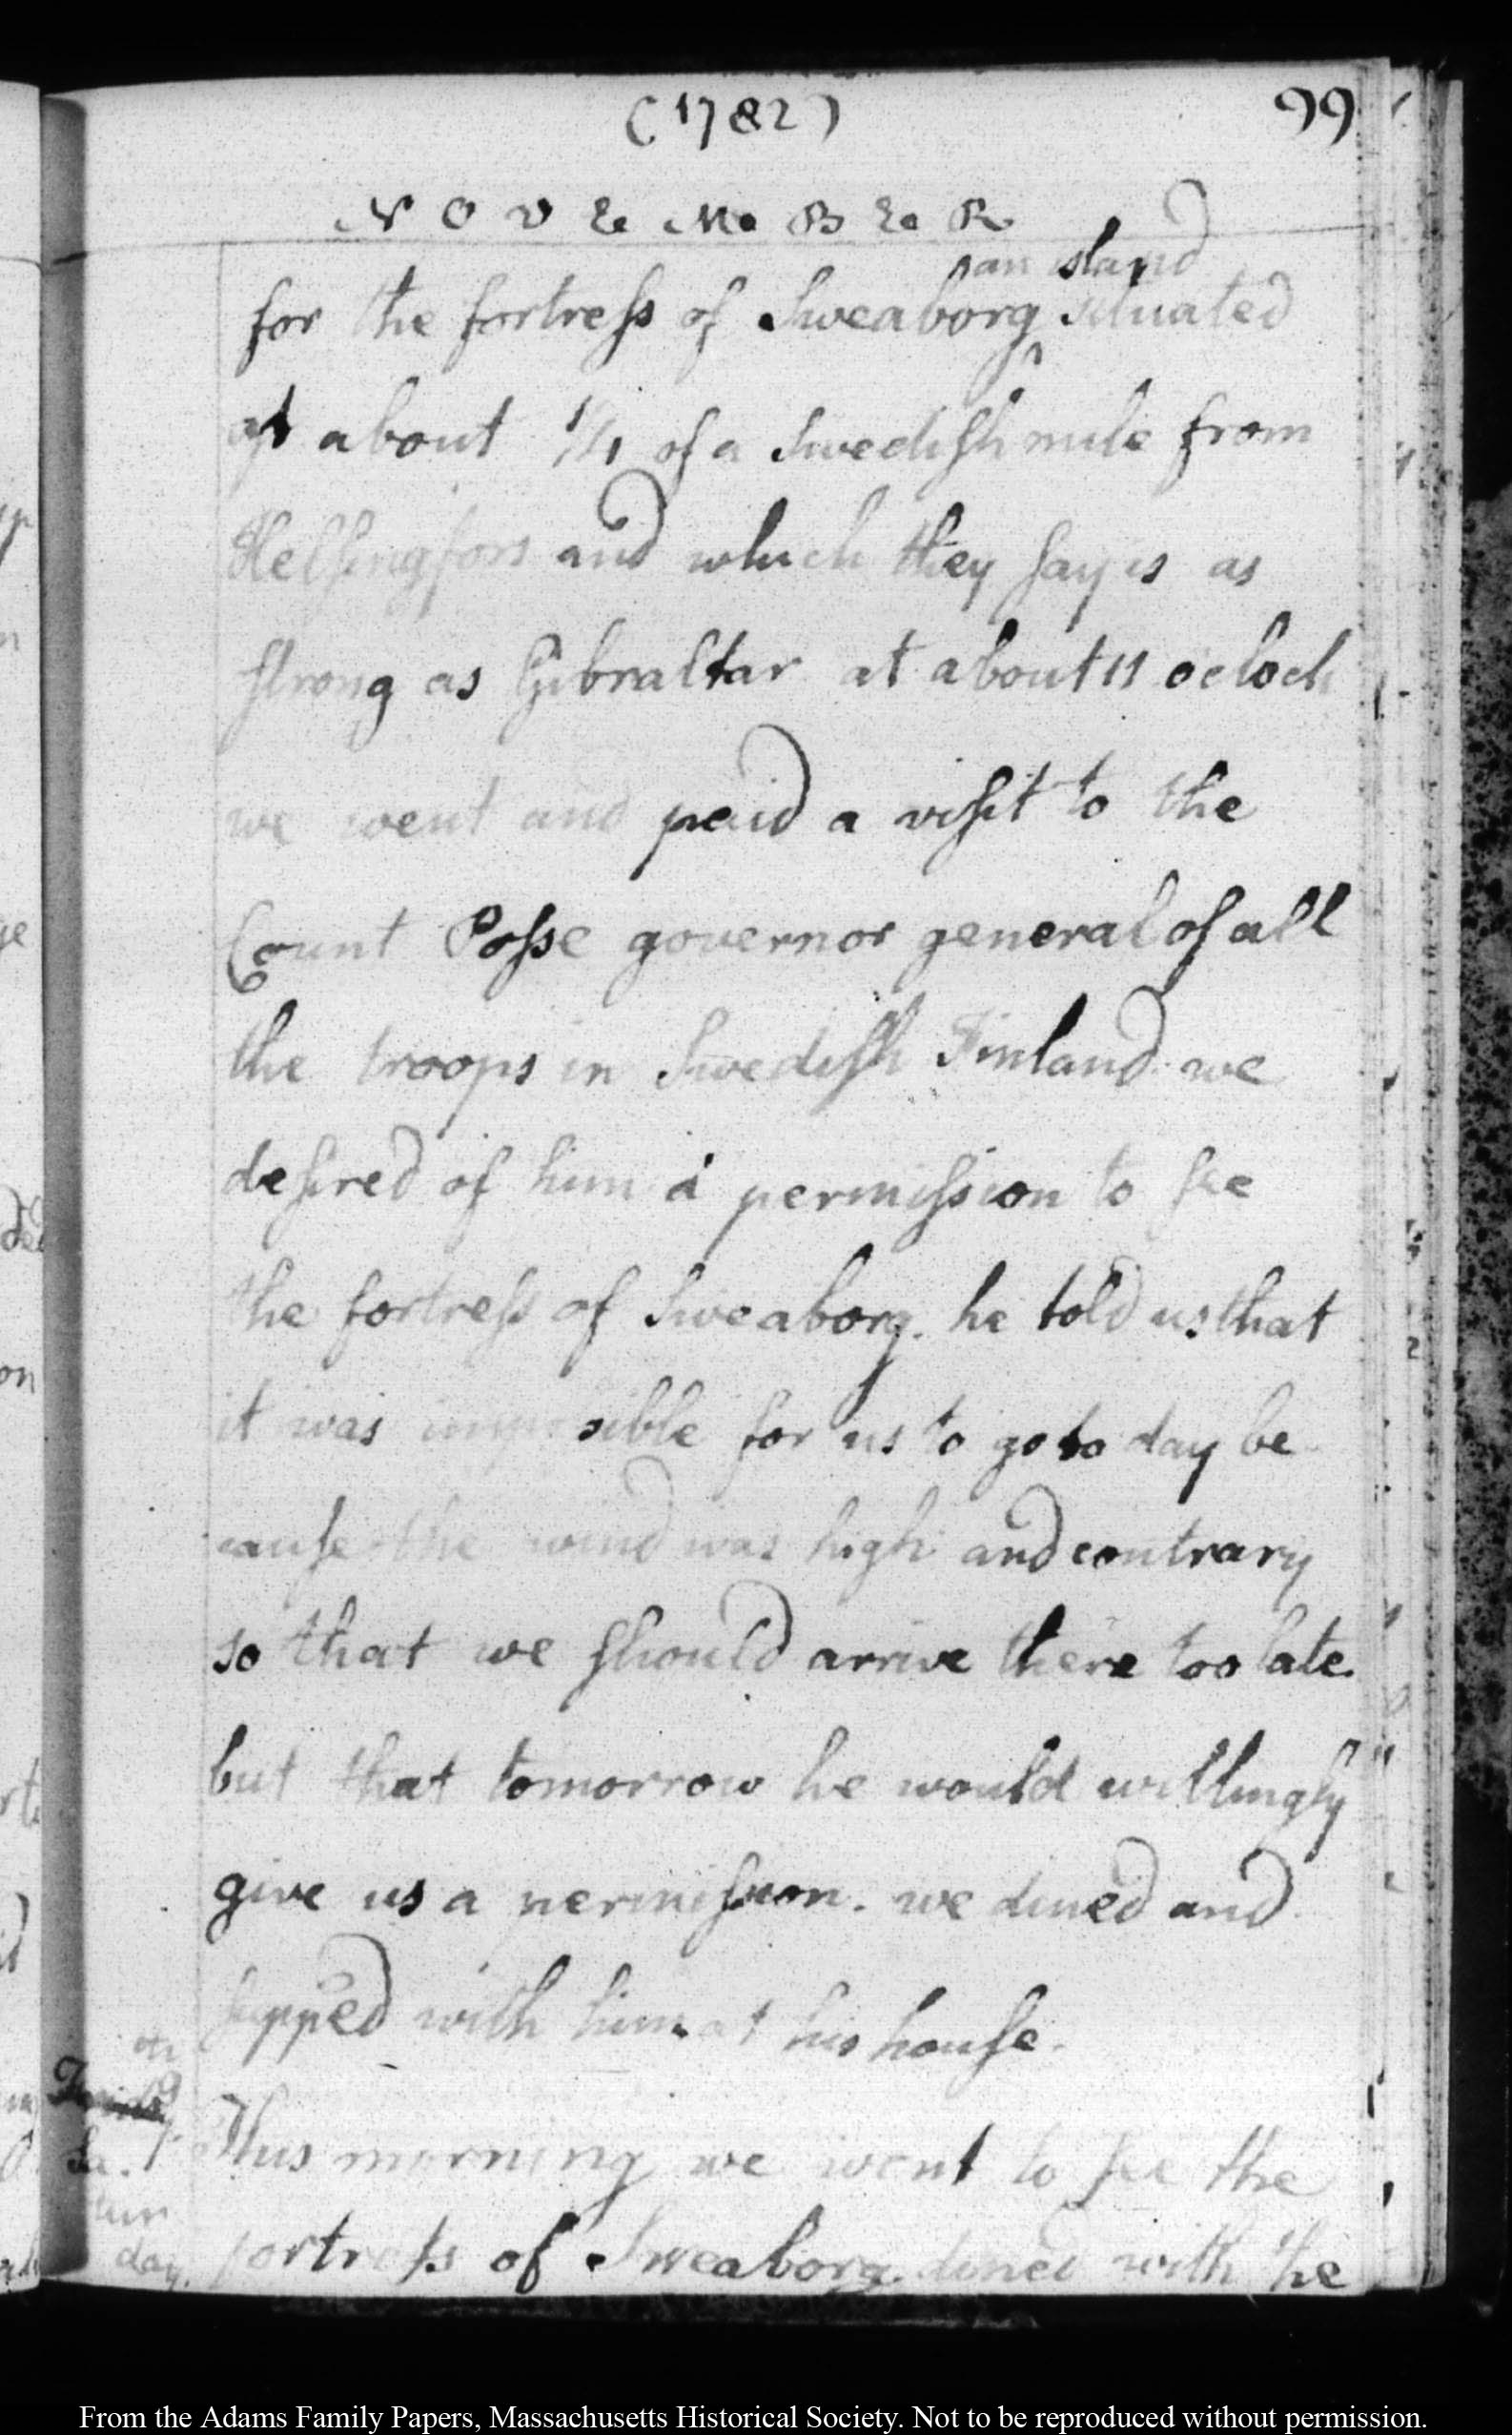 (1782)
99
NOVEMBER
an island
for the fortress of Sweaborg situated
at about 1/4 of a Swedish mile from
Helsingfors and which they say is as
strong as Gibraltar at about 11 o'cloch
we went and paid a visit to the
Count Posse governor general of all
the troops in Swedish Finland we
desired of him a permission to see
the fortress of Sweaborg. he told us that
it was impossible for us to go to day be
cause the wind was high and contrary
so that we should arrive there too late
but that tomorrow he would willingly
give us a permission. we dined and
supped with him at his house.
This morning we went to see the
Sa.
tur
day.
fortress of Sweaborg. dined with the
From the Adams Family Papers, Massachusetts Historical Society. Not to be reproduced without permission.